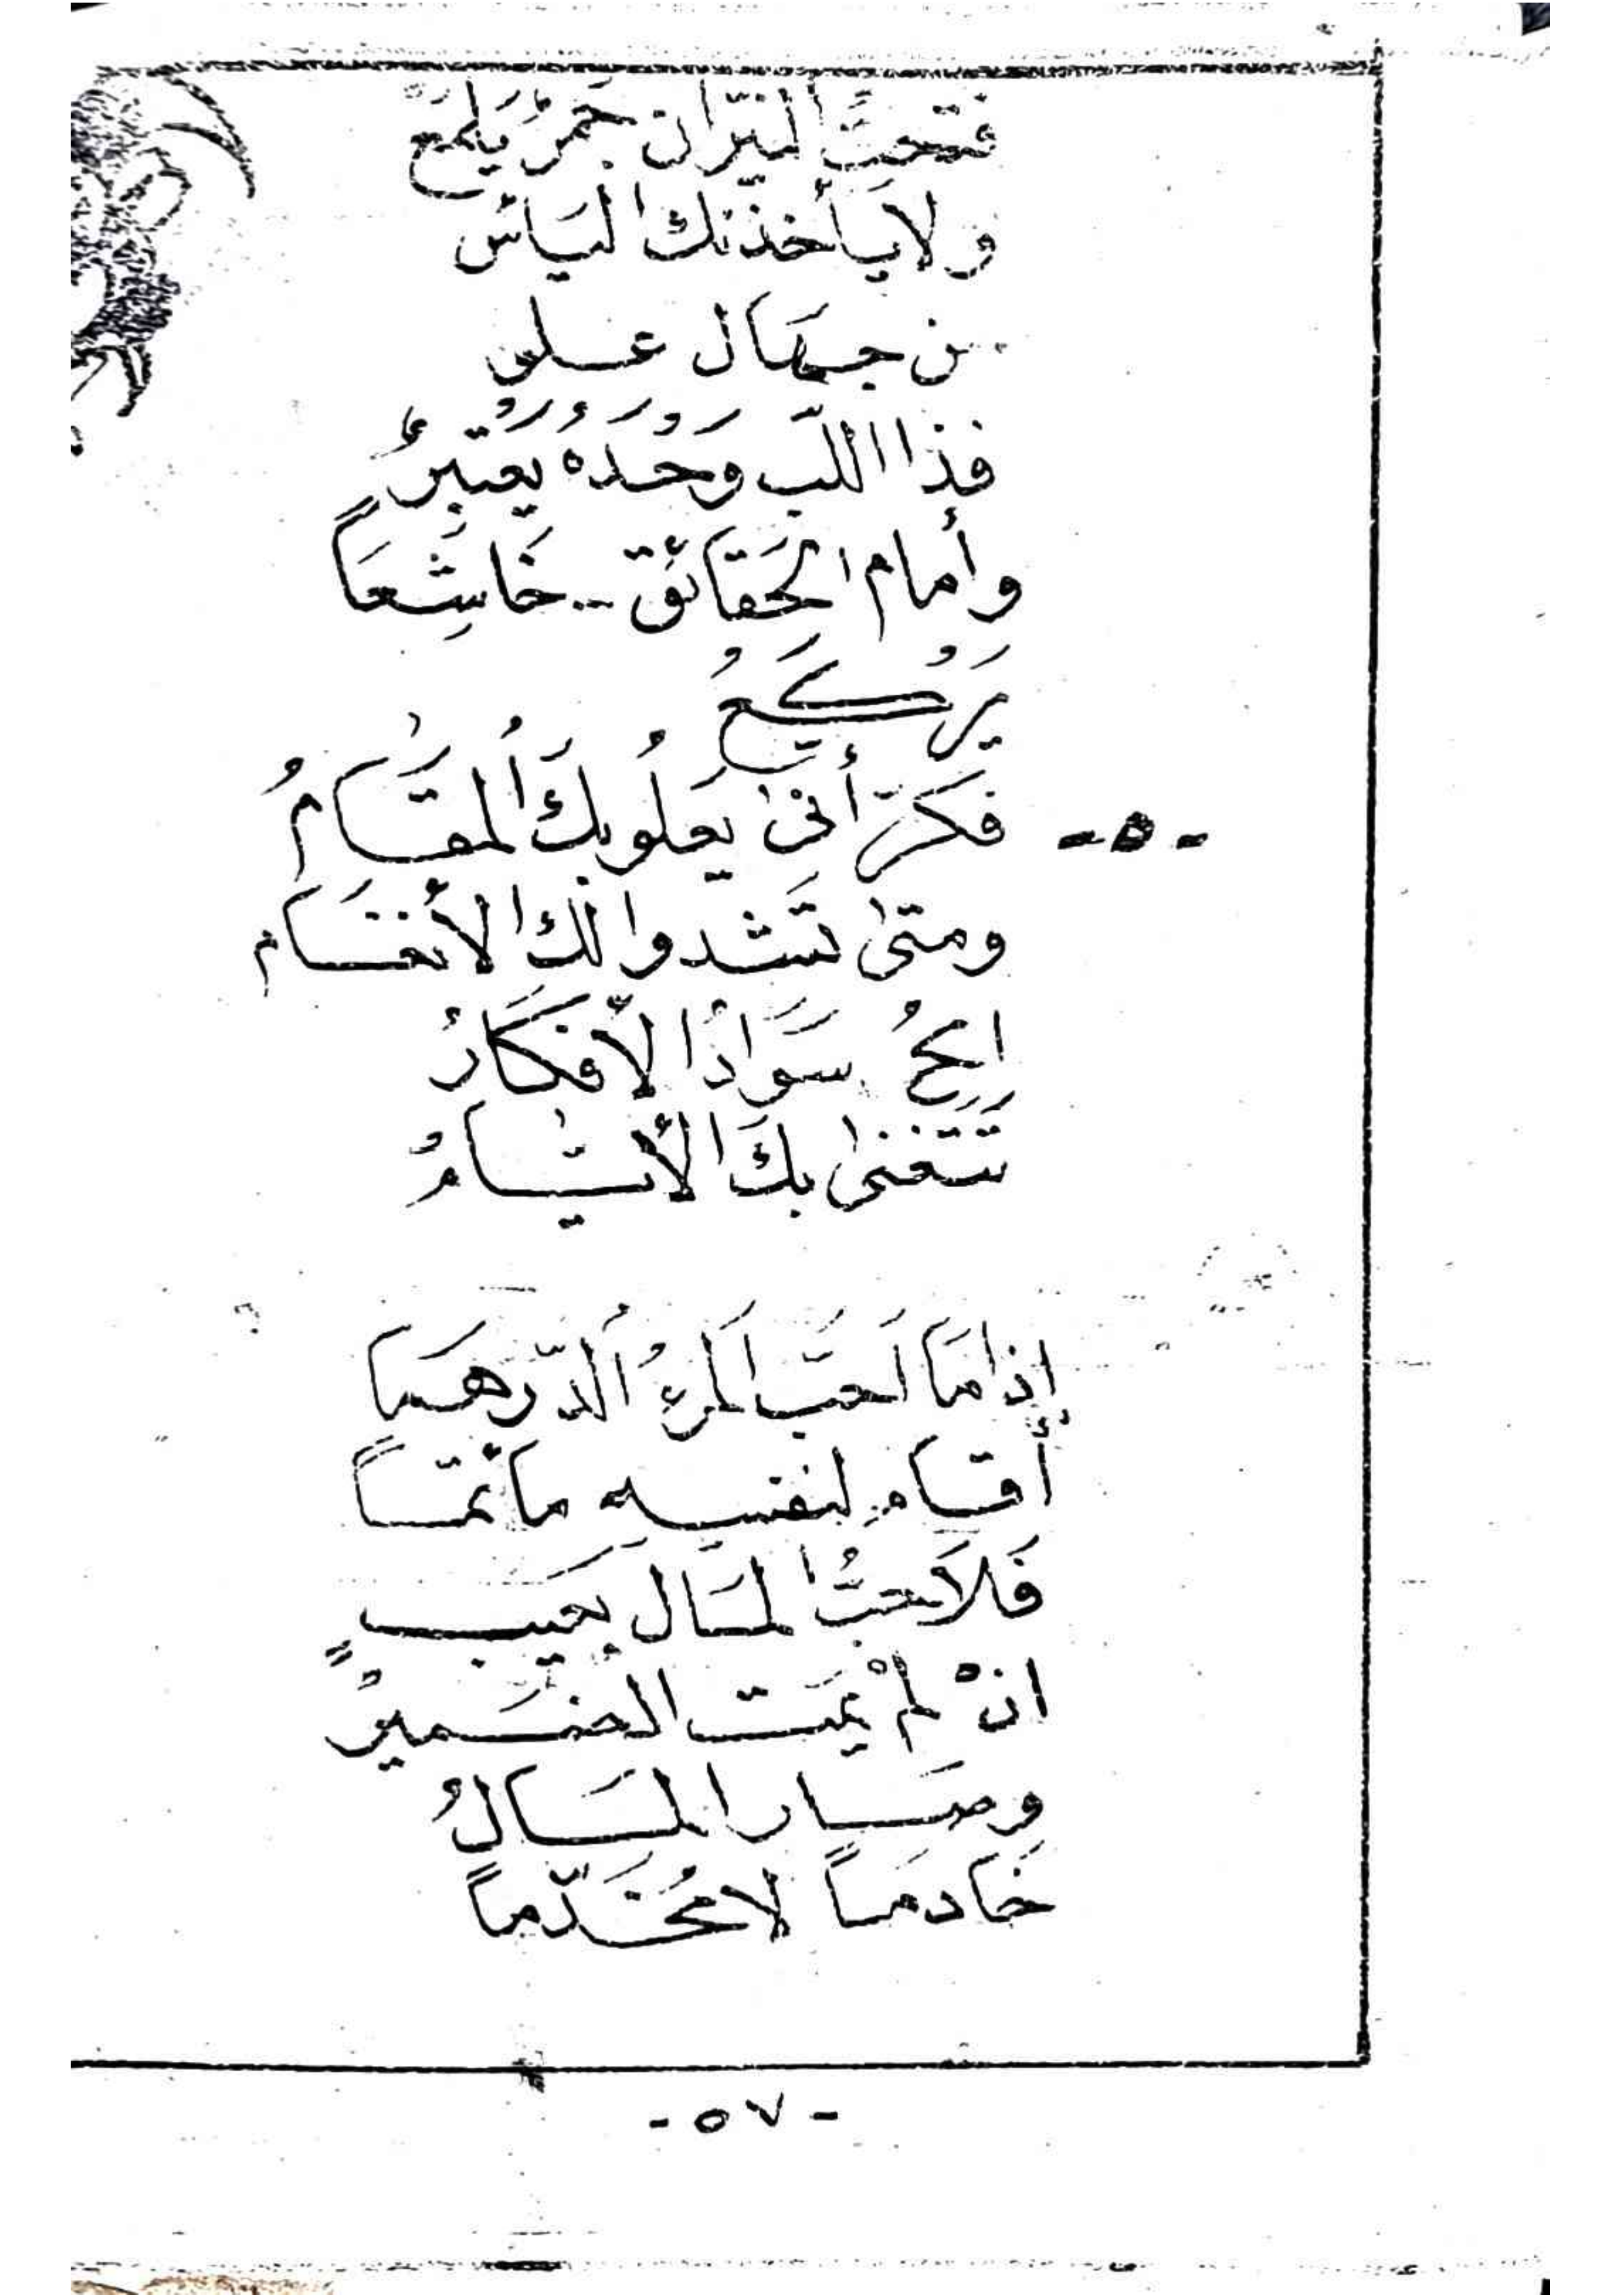 فتحتَ النيّران جَمرٌ يَلمَع
ولا يأخذنّك اليَأس
من جهَال عسلى
فذا اللبّ وَحْدَهُ يَعْتبرُ
وأمام الحَقائق .. خَاشِعَاً
يَرْكَعُ
-٥- فكرّ أنىٰ يَعلُو بكَ المقَامُ
ومتىٰ تَشدوا لك الأنغَام
امحُ سَوَادُ الأفكَارُ
تَتَغنىٰ بكَ الأيّامُ
اذا مَا لَعبَ المَرءُ الدّرهَمَا
أقام لنفسِهِ مأتمَاً
فَلاَ حبُّ المَال بعَيبٍ
انْ لمْ يمَت الضَميرُ
وصَار المَالُ
خَادمَاً لا مُخَدّماً
-٥٧-